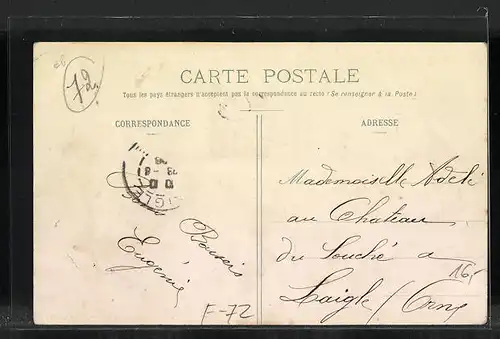 72
CARTE POSTALE
Tous les pays étrangers n'acceptent pas la correspondance au recto (Se renseigner à la Poste)
CORRESPONDANCE
ADRESSE
Mademoiselle Adèle
au Chateau
du Souché a
Laigle / Orne
16.-
Baisers
Eugénie
F-72